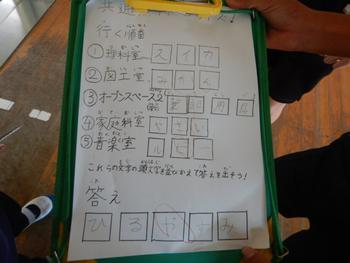 行く順番
①理科室 スイカ
②図工室 みかん
③オープンスペース2
④家庭科室 やさい
⑤音楽室 ルビー
これらの文字の頭文字を並びかえて答えを出そう!
答え
ひるやすみ